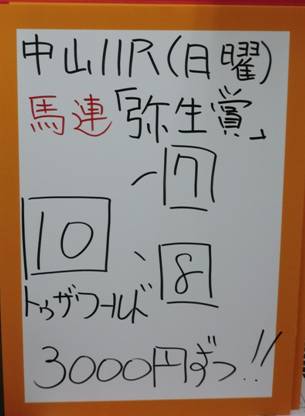 中山11R(日曜)
馬連「弥生賞」
7
10
8
トゥザワールド
3000円ずつ!!